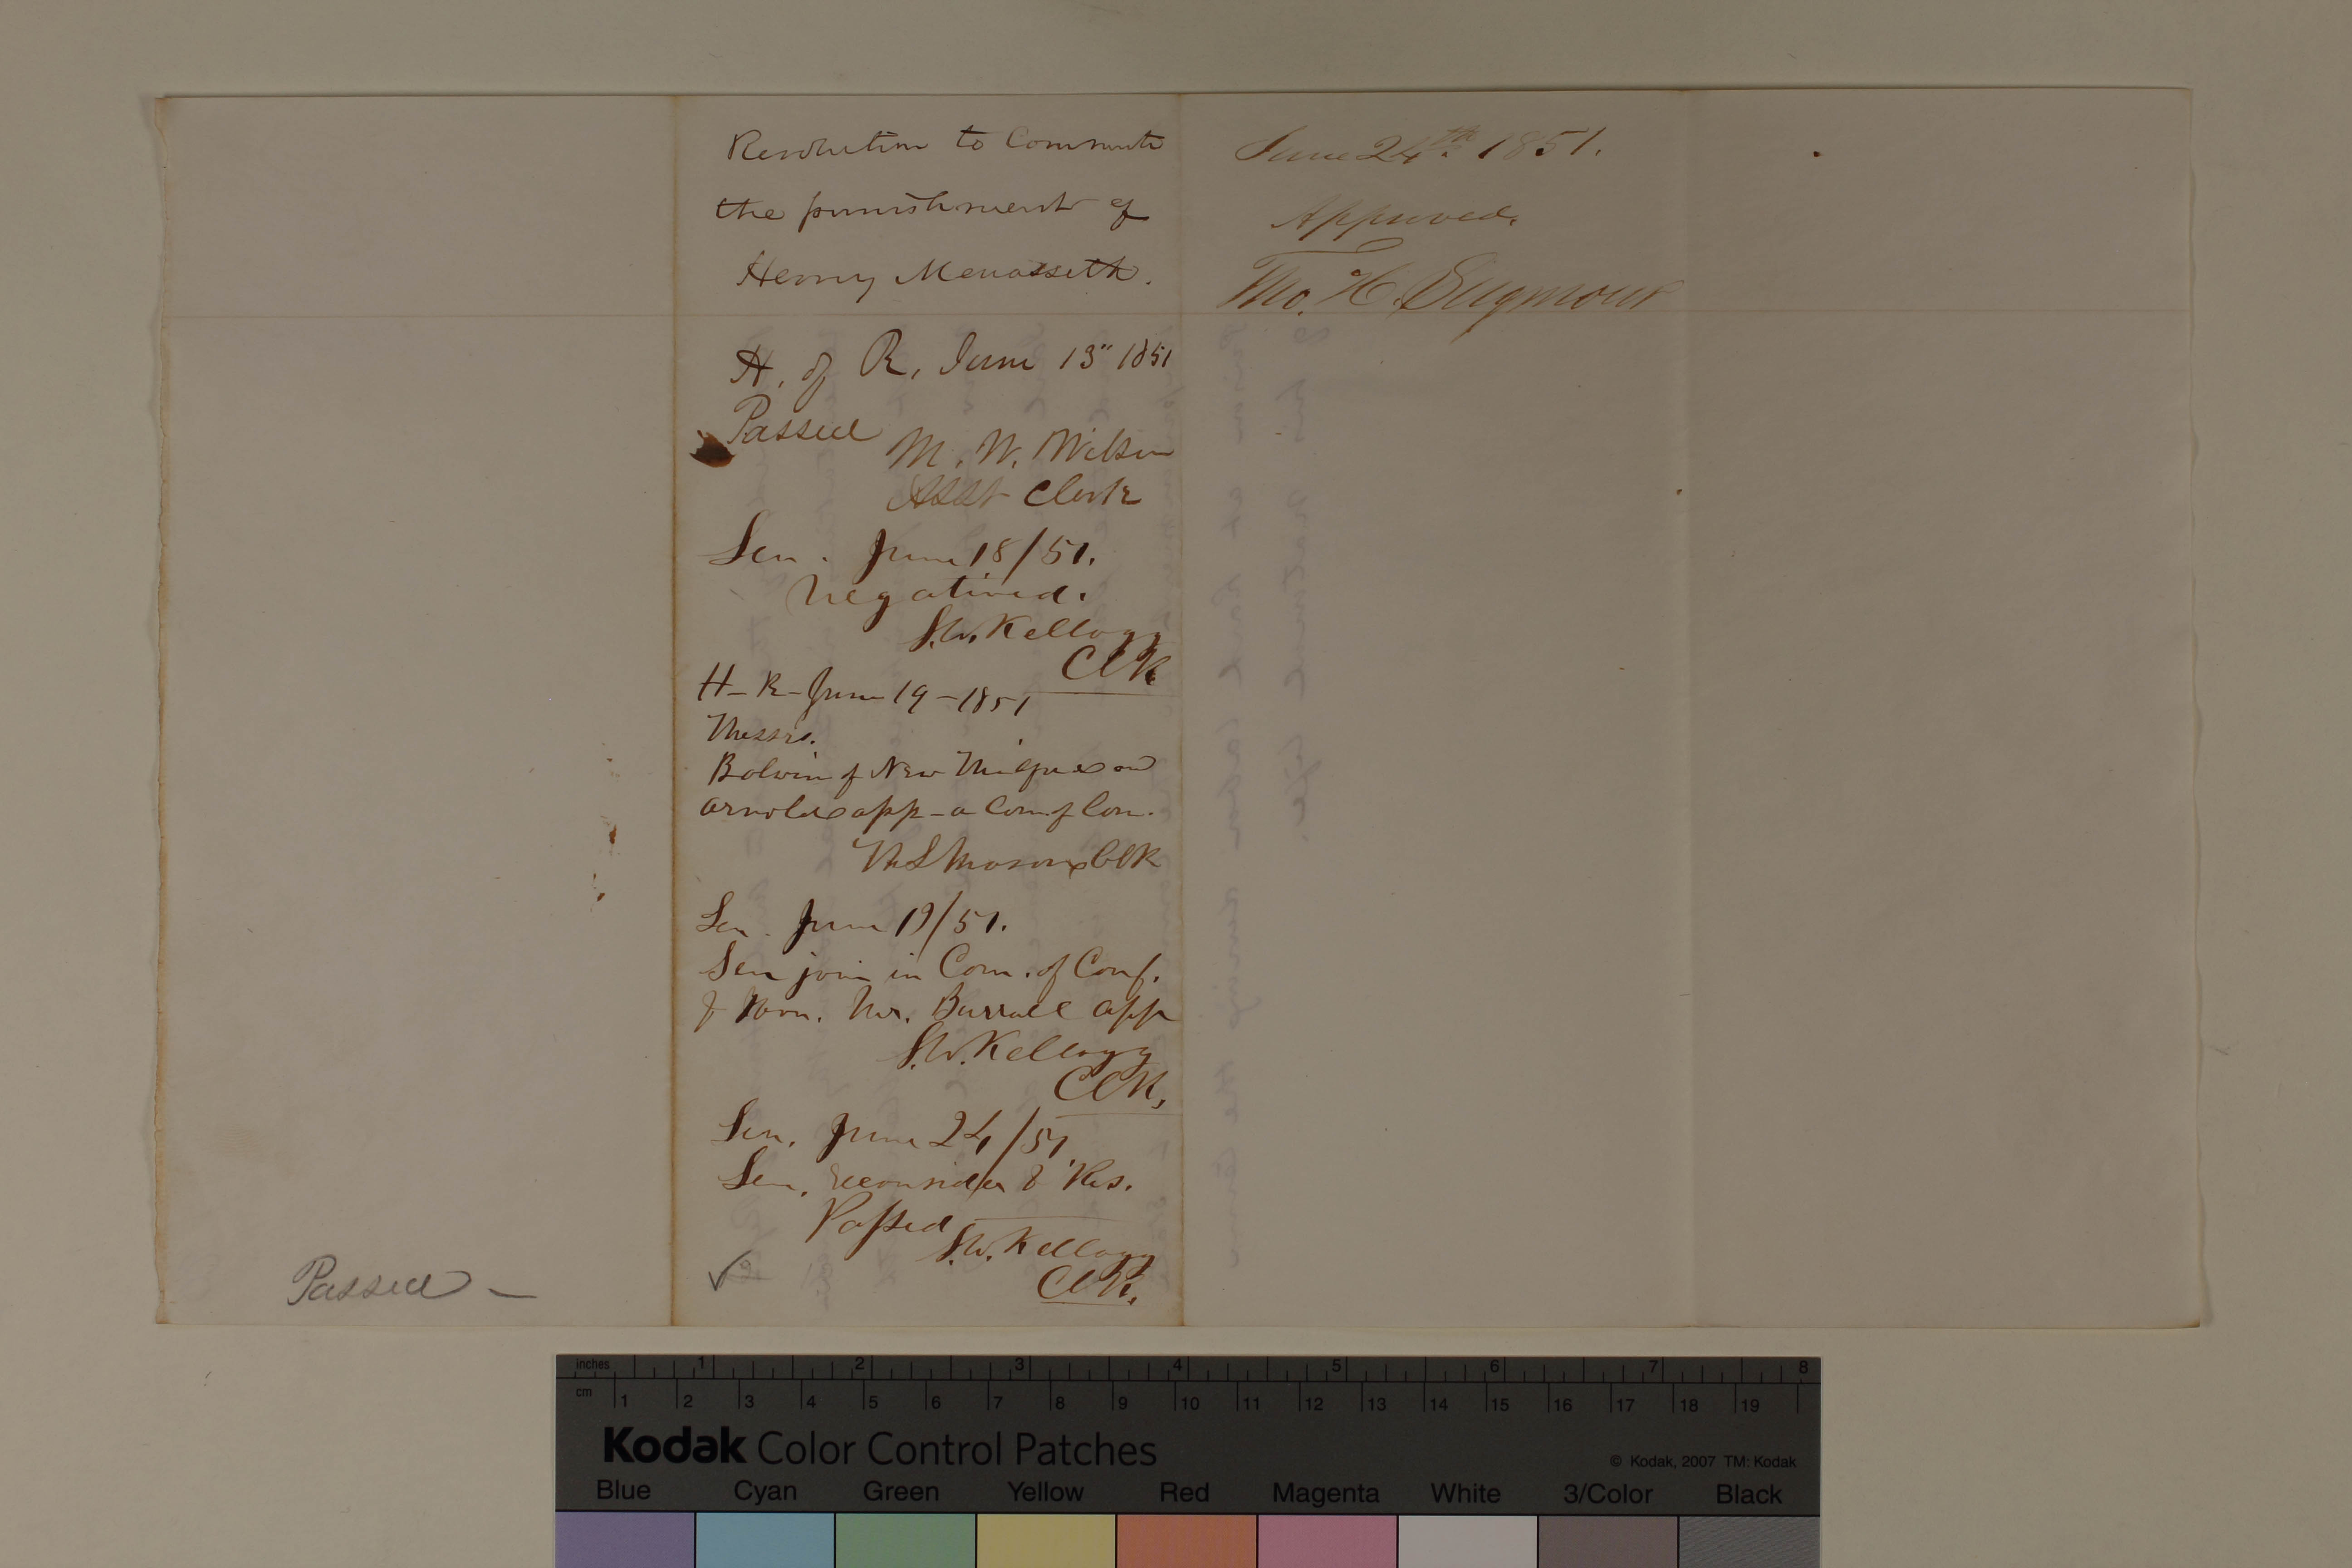 Resolution to Commute
the punishment of
Henry Menasseth.
H. of R, June 13" 1851
Passed
M. W. Wilson
Asst Clerk
Sen. June 18/51.
Negatived.
S.W. Kellogg
Clk
H-R-June 19-1851
Messrs.
of New and
Arnold app-a Com of Con.
Mason Clk
Sen. June 19/51.
Sen join in Com. of Conf.
& Hon. Mr. Burrall app
S.W. Kellogg
Clk,
Sen. June 24/51.
Sen. reconsider & Res.
Passed
S.W. Kellogg
Clk.
June 24th 1851.
Approved.
Tho. H. Seymour
Passed —
inches 1 2 3 4 5 6 7 8
cm 1 2 3 4 5 6 7 8 9 10 11 12 13 14 15 16 17 18 19
Kodak Color Control Patches
© Kodak, 2007 TM: Kodak
Blue Cyan Green Yellow Red Magenta White 3/Color Black